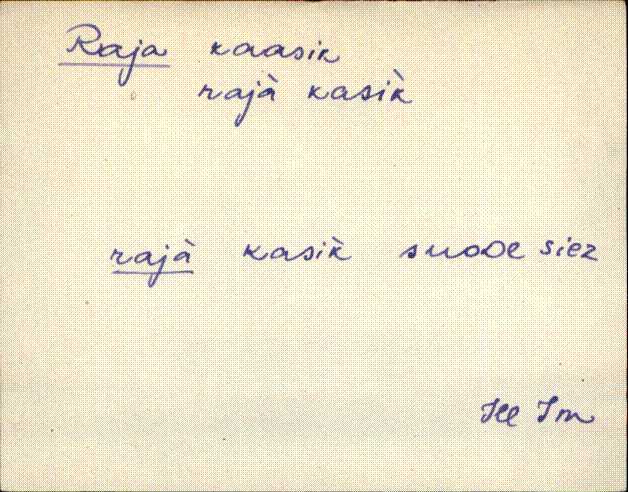 Raja kaasik
rajà kasìk
rajà kasìk suode siez
Hel Jm